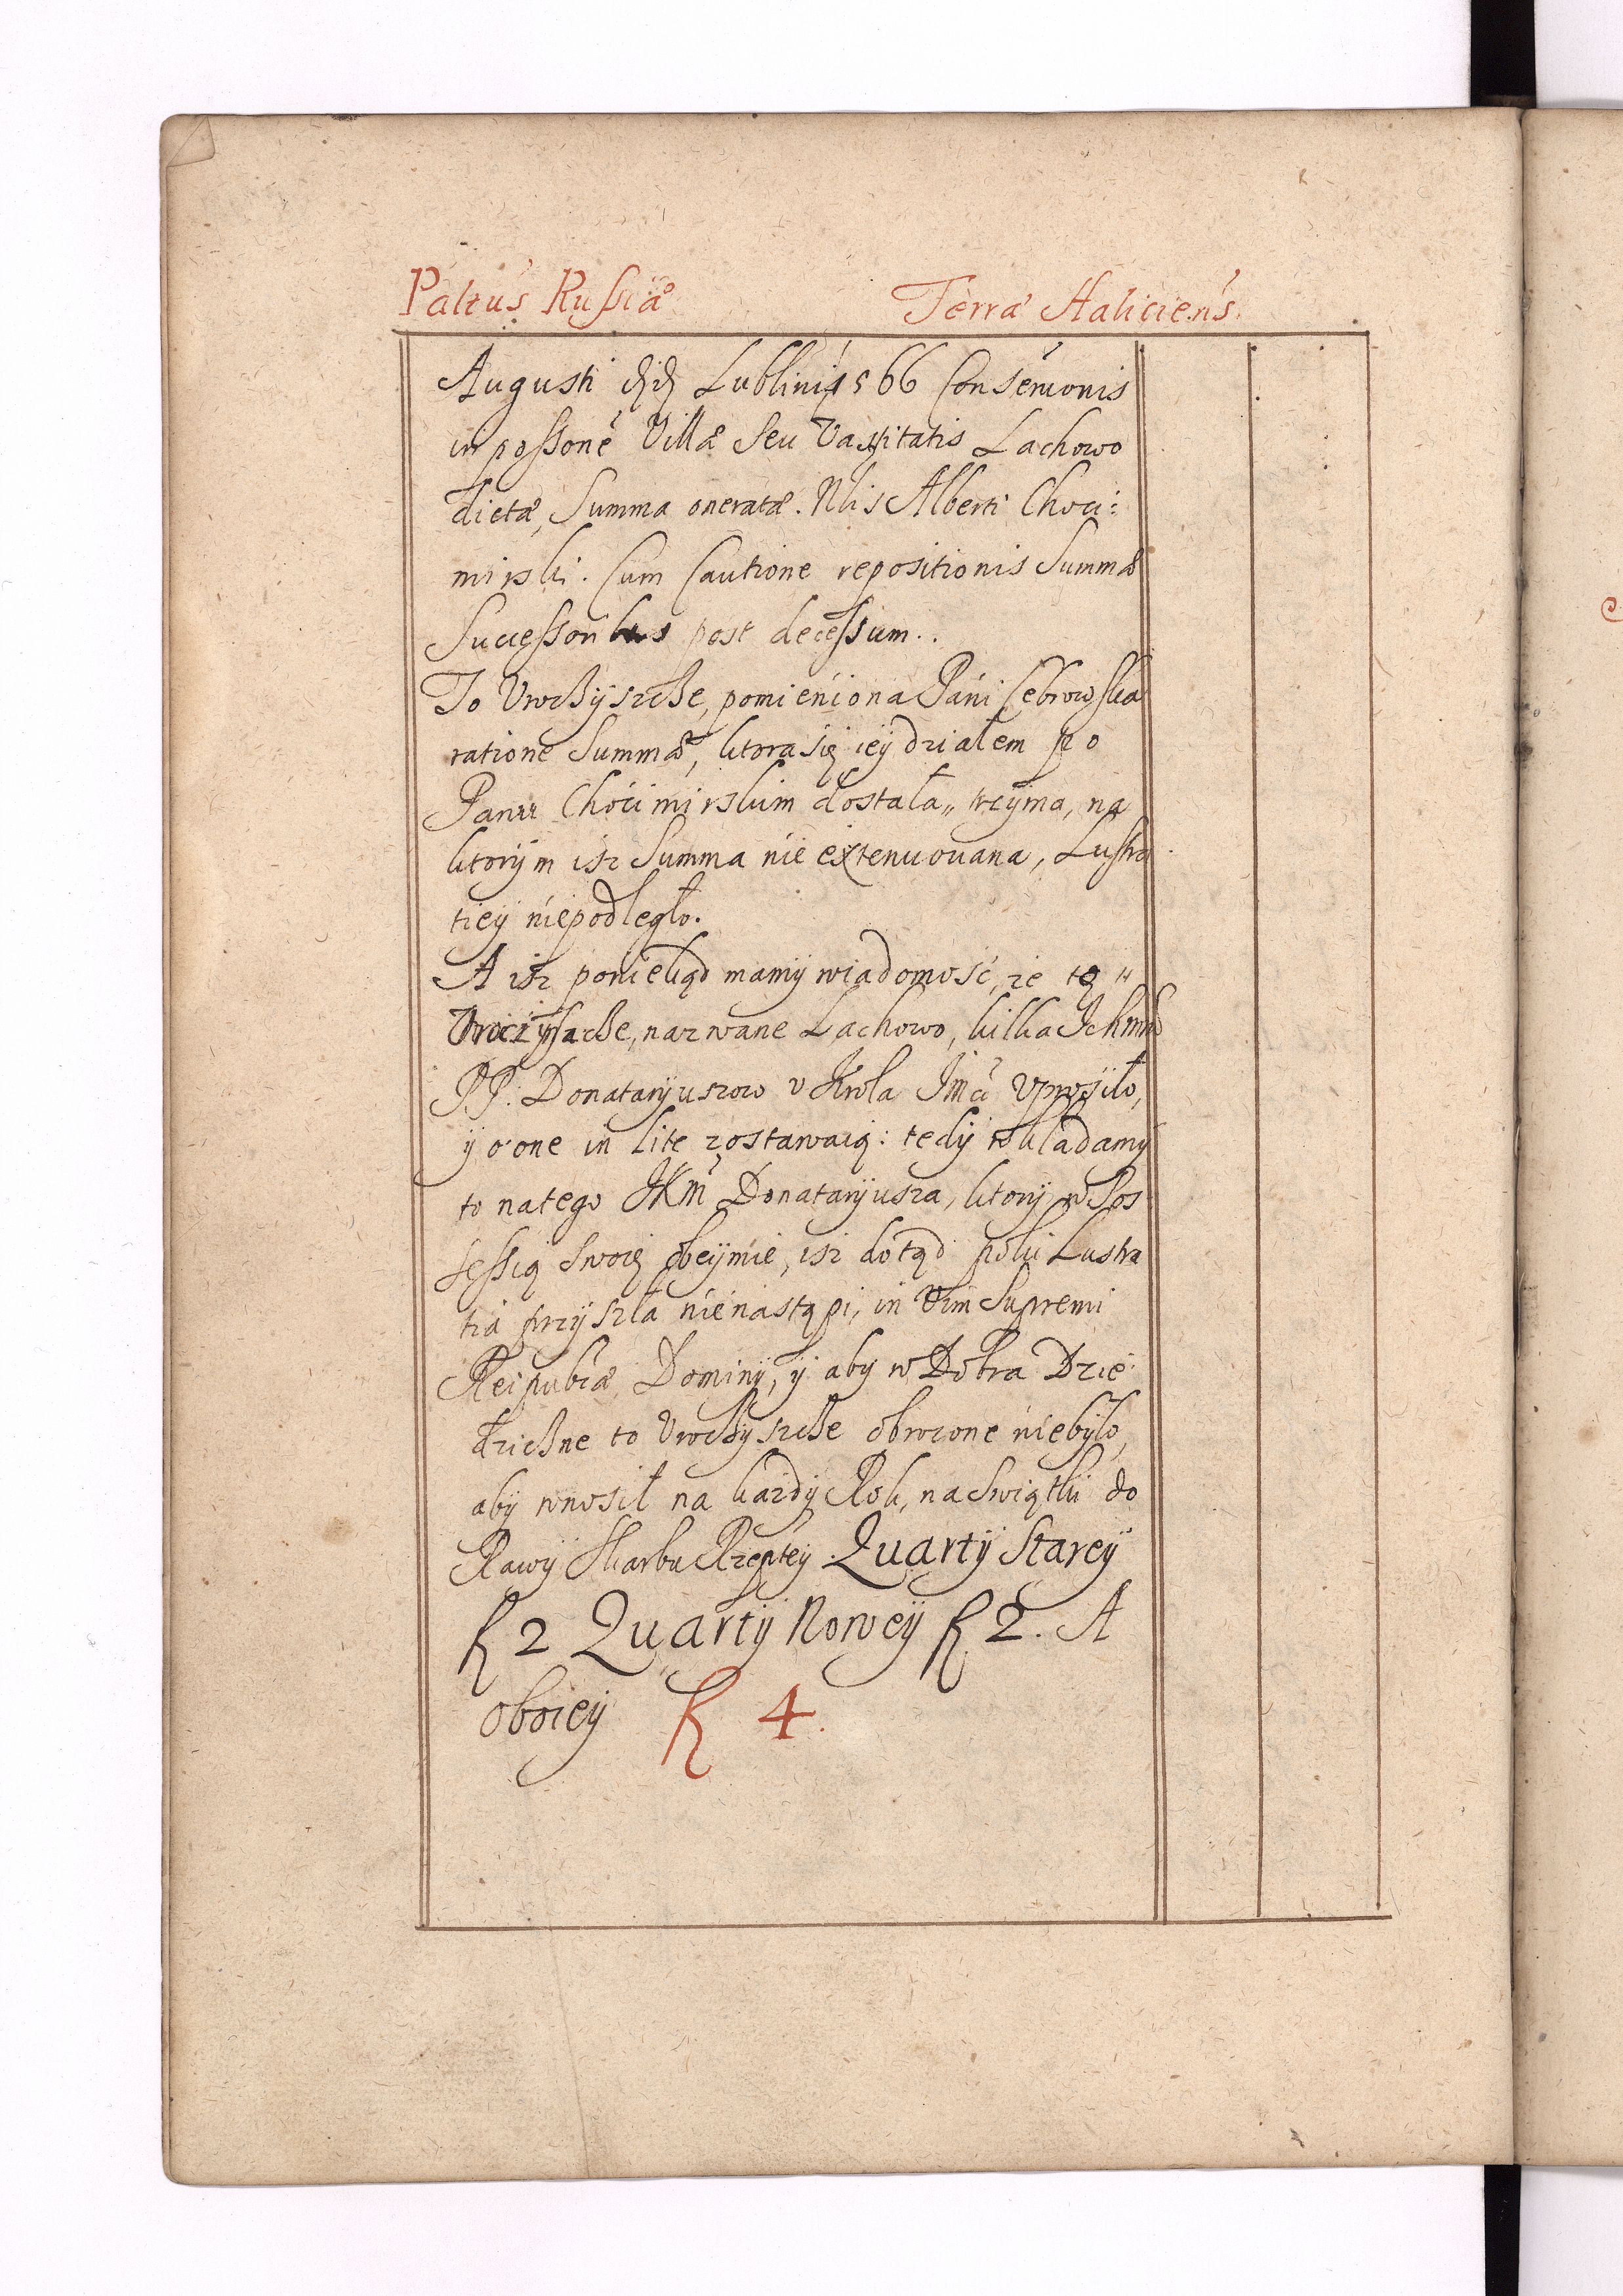 Paltus Russiæ Terræ Haliciens.
Augusti dd Lublini 1566 Conservonis
in possone Villæ Seu Vastitatis Lachowo
dictæ, Summa oneratæ. Nlis Alberti Choci:
mirski. Cum Cautione repositionis Summæ
Successoribus post decessum..
To Vroczyszcze, pomieniona Pani Cebrowska
ratione Summæ, ktora się iey działem po
Panu Chocimirskim dostała„ trzyma, na
ktorym isz Summa nie extenuowana, Lustra
tiey niepodległo.
A isz poniekąd mamy wiadomość, że tę„
Vroczyszcze, nazwane Lachowo, kilka Ichmw
P.P. Donataryuszow v Krola Jmci vprosiło,
y o one in lite zostawaią: tedy wkładamy
to natego JKM Donataryusza, ktory w Pos
sessią Swoię obeymie, isz dotąd poki Lustra
tia przyszła nienastąpi, in Vim Supremi
Reipubcæ Dominy, y aby w Dobra Dzie
dziczne to Vroczyszcze obrocone niebyło,
aby wnosił na każdy Rok, na Swiątki do
Rawy Skarbu Rzeptey Quarty Starey
fl 2 Quarty Nowey fl 2. A
oboiey fl 4.